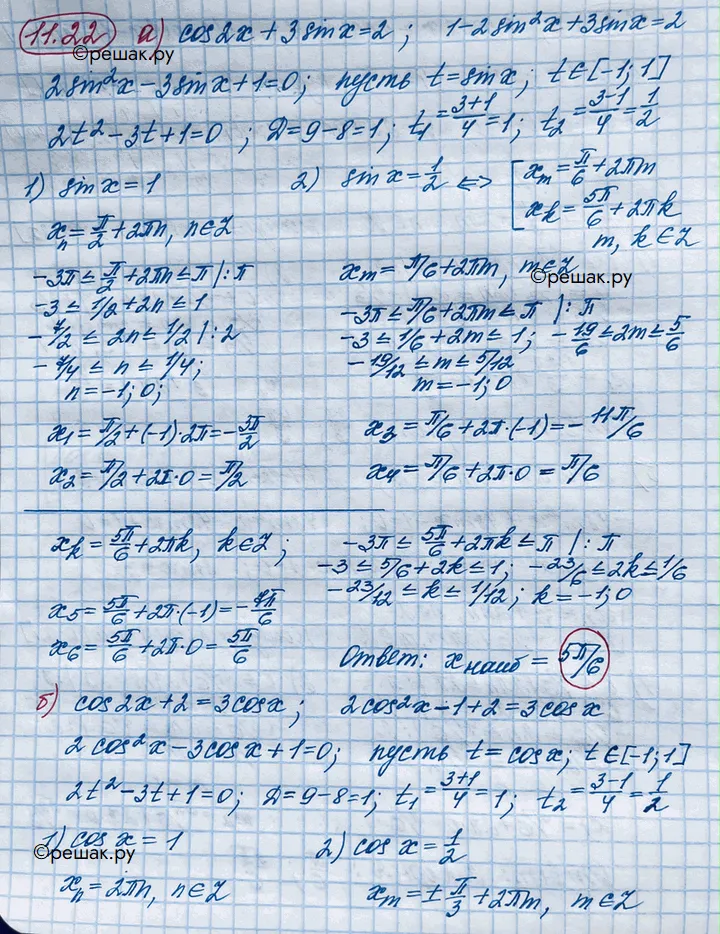 11.22 а) cos2x + 3sinx = 2; 1 - 2sin²x + 3sinx = 2
©решак.ру
2sin²x - 3sinx + 1 = 0; пусть t = sinx; t ∈ [-1; 1]
2t² - 3t + 1 = 0; D = 9 - 8 = 1; t₁ = (3+1)/4 = 1; t₂ = (3-1)/4 = 1/2
1) sinx = 1 2) sinx = 1/2 <=> [ xₘ = π/6 + 2πm
xₖ = 5π/6 + 2πk
m, k ∈ Z
xₙ = π/2 + 2πn, n ∈ Z
-3π ≤ π/2 + 2πn ≤ π | : π
-3 ≤ 1/2 + 2n ≤ 1
-7/2 ≤ 2n ≤ 1/2 | : 2
-7/4 ≤ n ≤ 1/4;
n = -1; 0;
x₁ = π/2 + (-1)·2π = -3π/2
x₂ = π/2 + 2π·0 = π/2
xₘ = π/6 + 2πm, m ∈ Z
©решак.ру
-3π ≤ π/6 + 2πm ≤ π | : π
-3 ≤ 1/6 + 2m ≤ 1; -19/6 ≤ 2m ≤ 5/6
-19/12 ≤ m ≤ 5/12
m = -1; 0
x₃ = π/6 + 2π·(-1) = -11π/6
x₄ = π/6 + 2π·0 = π/6
xₖ = 5π/6 + 2πk, k ∈ Z; -3π ≤ 5π/6 + 2πk ≤ π | : π
-3 ≤ 5/6 + 2k ≤ 1; -23/6 ≤ 2k ≤ 1/6
-23/12 ≤ k ≤ 1/12; k = -1; 0
x₅ = 5π/6 + 2π·(-1) = -7π/6
x₆ = 5π/6 + 2π·0 = 5π/6
Ответ: xнаиб = 5π/6
б) cos2x + 2 = 3cosx; 2cos²x - 1 + 2 = 3cosx
2cos²x - 3cosx + 1 = 0; пусть t = cosx; t ∈ [-1; 1]
2t² - 3t + 1 = 0; D = 9 - 8 = 1; t₁ = (3+1)/4 = 1; t₂ = (3-1)/4 = 1/2
1) cos x = 1 2) cos x = 1/2
©решак.ру
xₙ = 2πn, n ∈ Z xₘ = ± π/3 + 2πm, m ∈ Z